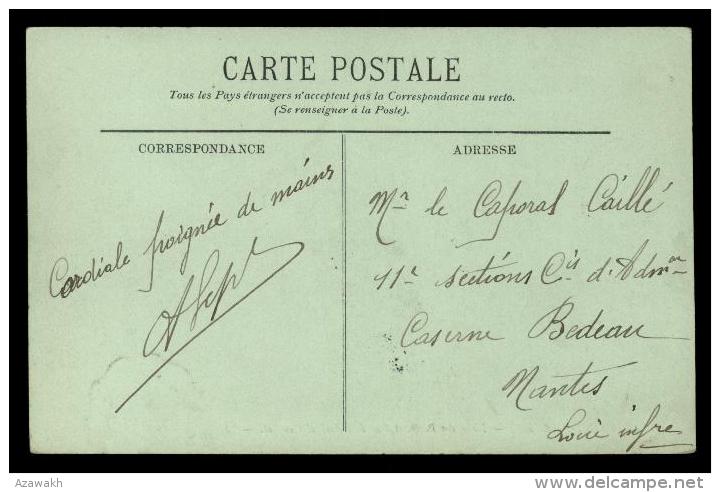 CARTE POSTALE
Tous les Pays étrangers n'acceptent pas la Correspondance au recto.
(Se renseigner à la Poste).
CORRESPONDANCE
Cordiale poignée de mains
ADRESSE
Mr le Caporal Caillé
11e sections Cis d'Admon
Caserne Bedeau
Nantes
Loire infre
Azawakh
www.delcampe.net